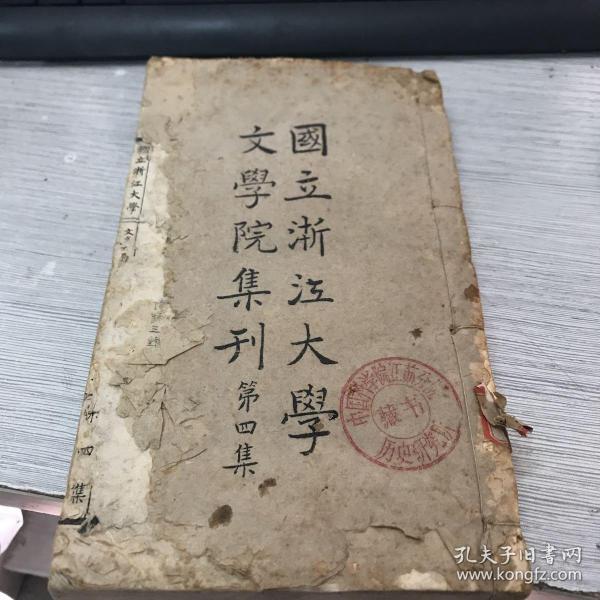 國立浙江大學
文學院集刊
第四集
國立浙江大學
文
第三號
第四集
中国科学院江苏分院
历史研究所
藏书
孔夫子旧书网
www.kongfz.com